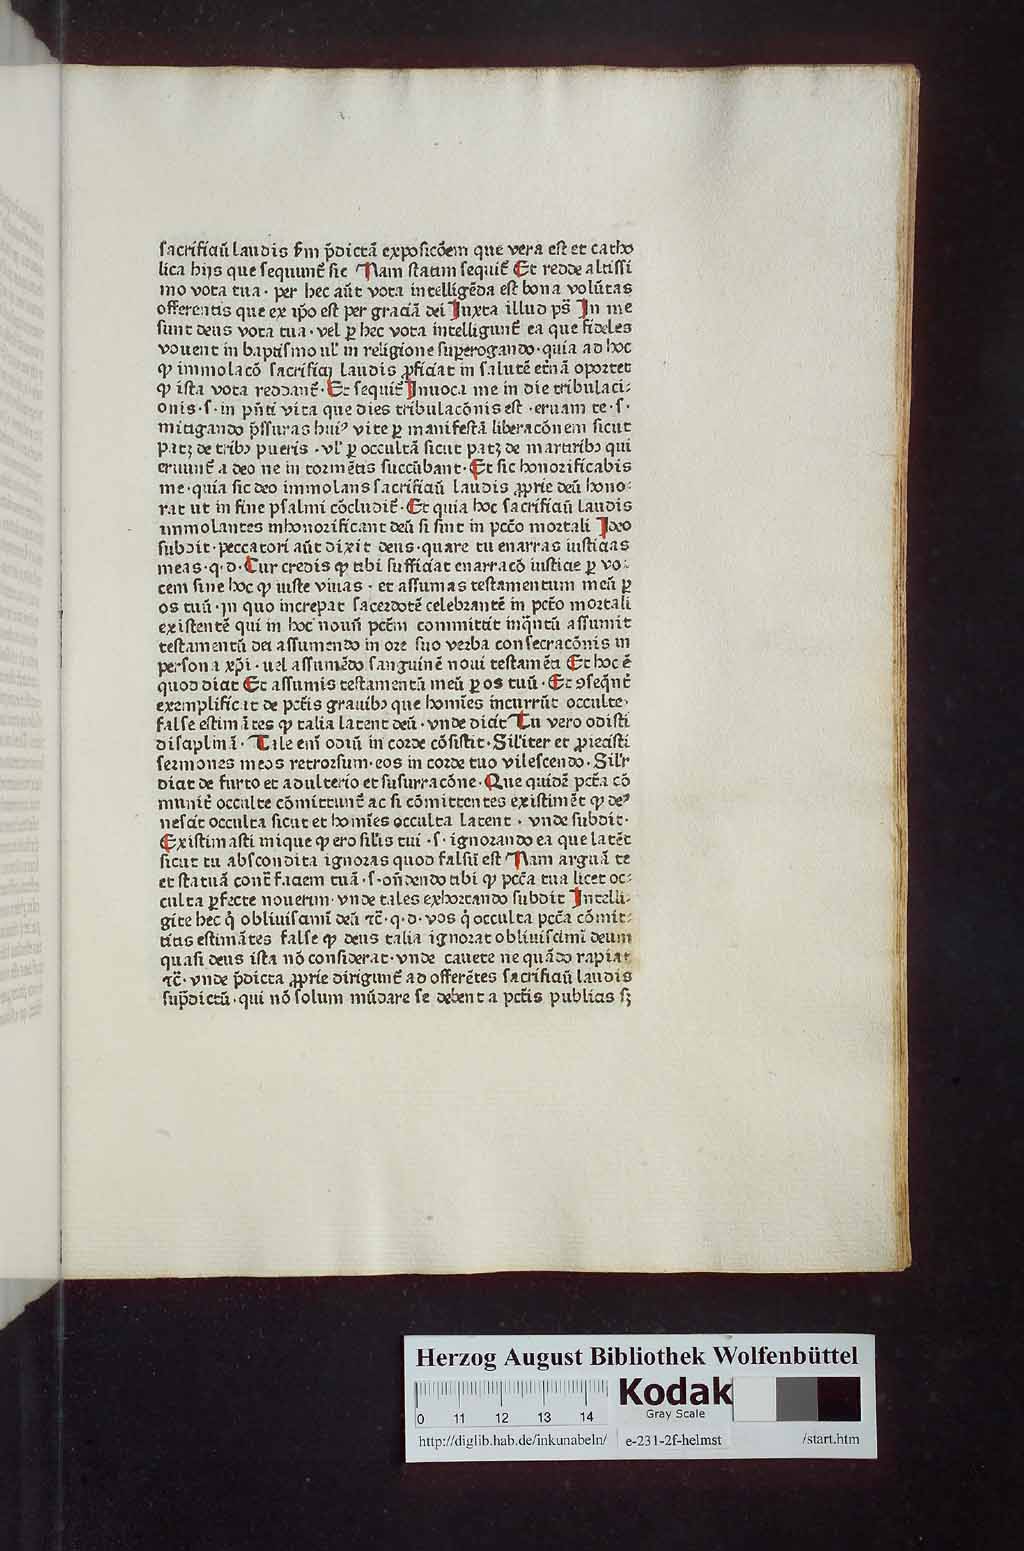 sacrificiū laudis ẜm p̄dictā exposicōem que vera est et catho
lica hijs que sequunt᷑ sic Nam statim sequit᷑ Et redde altissi
mo vota tua· per hec aūt vota intelligēda est bona volūtas
offerentis que ex ip̄o est per graciā dei Iuxta illud ps̄ In me
sunt deus vota tua· vel ꝑ hec vota intelligunt᷑ ea que fideles
vouent in baptismo ul' in religione superogando· quia ad hoc
ꝙ immolacō sacrificij laudis ꝓficiat in salutē et̄nā oportet
ꝙ ista vota reddant᷑· Et sequit᷑ Inuoca me in die tribulaci-
onis· s· in pn̄ti vita que dies tribulacōnis est ·eruam te· s·
mitigando p̄ssuras huiꝰ vite ꝑ manifestā liberacōnem sicut
patꝫ de tribꝫ pueris · vl' ꝑ occultā sicut patꝫ de martiribꝫ qui
eruunt᷑ a deo ne in tormētis succūbant· Et sic honorificabis
me· quia sic deo immolans sacrificiū laudis ꝓprie deū hono-
rat ut in fine psalmi cōcludit᷑· Et quia hoc sacrificiū laudis
immolantes inhonorificant deū si sint in pctō mortali Ideo
subdit· peccatori aūt dixit deus· quare tu enarras iusticias
meas· q· d· Cur credis ꝙ tibi sufficiat enarracō iusticie ꝑ vo-
cem sine hoc ꝙ iuste viuas · et assumas testamentum meū ꝑ
os tuū· In quo increpat sacerdotē celebrantē in pctō mortali
existentē qui in hoc nouū pctm̄ committit inq̄ntū assumit
testamentū dei assumendo in ore suo verba consecracōnis in
persona xp̄i· uel assumēdo sanguinē noui testamēti Et hoc ē
quod dicit Et assumis testamentū meū ꝑ os tuū· Et ꝯseq̄nt᷑
exemplificat de pctīs grauibꝫ que homīes incurrūt occulte·
false estimātes ꝙ talia latent deū· vnde dicit Tu vero odisti
disciplinā· Tale enī odiū in corde cōsistit· Sil'iter et ꝓiecisti
sermones meos retrorsum· eos in corde tuo vilescendo· Sil'r
dicit de furto et adulterio et susurracōne· Que quidē pctā cō
munit᷑ occulte cōmittunt᷑ ac si cōmittentes existimēt ꝙ deꝰ
nesciat occulta sicut et homīes occulta latent · vnde subdit·
Existimasti inique ꝙ ero sil'is tui · s· ignorando ea que latēt
sicut tu abscondita ignoras quod falsū est Nam arguā te
et statuā cont᷑ faciem tuā· s· on̄dendo tibi ꝙ pctā tua licet oc-
culta ꝑfecte nouerim· vnde tales exhortando subdit Intelli-
gite hec q̇ obliuiscimī deū ⁊c̄· q· d· vos q̇ occulta pctā cōmit-
titis estimātes false ꝙ deus talia ignorat obliuiscimī deum
quasi deus ista nō considerat· vnde cauete ne quādo rapiat
⁊c̄· vnde p̄dicta ꝓprie dirigunt᷑ ad offerētes sacrificiū laudis
sup̄dictū· qui nō solum mūdare se debent a pctīs publicis sꝫ
Herzog August Bibliothek Wolfenbüttel
Kodak
Gray Scale
0 11 12 13 14
http://diglib.hab.de/inkunabeln/ e-231-2f-helmst /start.htm